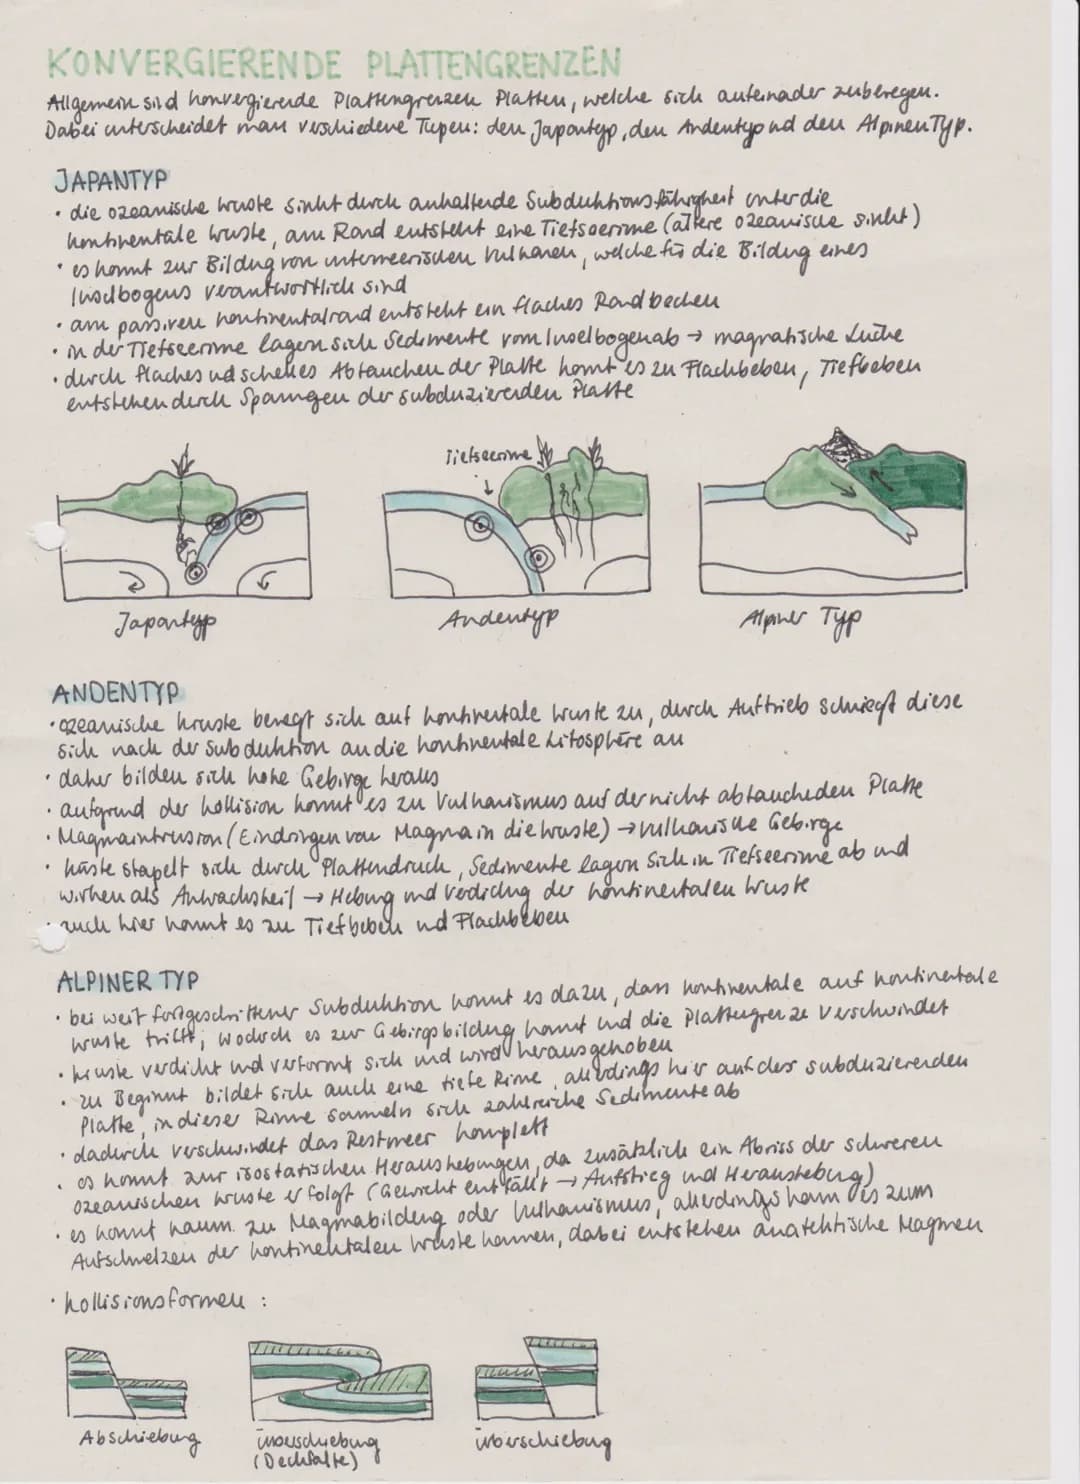 KONVERGIERENDE PLATTENGRENZEN
Allgemein sind konvergierende Plattengrenzen Platten, welche sich aufeinader zubewegen.
Dabei unterscheidet man verschiedene Typen: den Japantyp, den Andentyp und den Alpinen Typ.
JAPANTYP
• die ozeanische Kruste sinkt durch anhaltende Subduktionsfähigkeit unter die
kontinentale Kruste, am Rand entsteht eine Tiefseerinne (ältere ozeanische sinkt)
• es kommt zur Bildug von untermeerischen Vulkanen, welche für die Bildug eines
Inselbogens verantwortlich sind
• am passiven Kontinentalrand entsteht ein flaches Randbecken
• in der Tiefseerinne lagern sich Sedimente vom Inselbogen ab → magmatische Lücke
• durch flaches ud schelles Abtauchen der Platte kommt es zu Flachbeben, Tiefbeben
entstehen durch Spannugen der subduzierenden Platte
Tiefseerinne
Japantyp
Andentyp
Alpiner Typ
ANDENTYP
• ozeanische Kruste bewegt sich auf kontinentale Kruste zu, durch Auftrieb schmiegt diese
sich nach der Subduktion an die kontinentale Litosphäre an
• daher bilden sich hohe Gebirge heraus
• aufgrund der Kollision kommt es zu Vulkanismus auf der nicht abtaucheden Platte
• Magmaintrusion (Eindringen von Magma in die Kruste) → vulkanische Gebirge
• Kruste stapelt sich durch Plattendruck, Sedimente lagern sich in Tiefseerinne ab und
wirken als Anwachskeil → Hebung und Verdichtug der kontinentalen Kruste
• auch hier kommt es zu Tiefbeben und Flachbeben
ALPINER TYP
• bei weit fortgeschrittener Subduktion kommt es dazu, dass kontinentale auf kontinentale
Kruste trifft, wodurch es zur Gebirgsbildug kommt und die Plattengrenze verschwindet
• Kruste verdickt und verformt sich und wird herausgehoben
• zu Beginnt bildet sich auch eine tiefe Rinne, allerdings hier auf der subduzierenden
Platte, in dieser Rinne sammeln sich zahlreiche Sedimente ab
• dadurch verschwindet das Restmeer komplett
• es kommt zur isostatischen Heraushebungen, da zusätzlich ein Abriss der schweren
ozeanischen Kruste erfolgt (Gewicht entfällt → Aufstieg und Heraushebug)
• es kommt kaum zu Magmabildung oder Vulkanismus, allerdings kann es zum
Aufschmelzen der kontinentalen Kruste kommen, dabei entstehen anatektische Magmen
• Kollisionsformen :
Abschiebung
Überschiebung
(Deckfalte)
Überschiebung